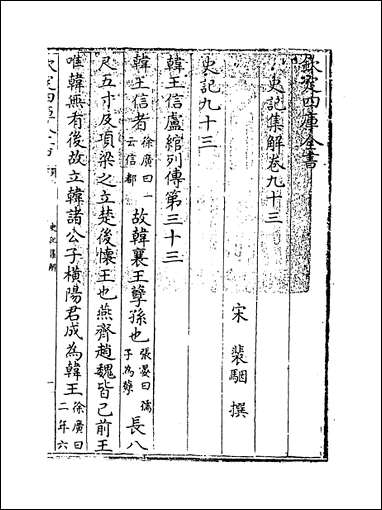 欽定四庫全書
史記集解卷九十三
宋 裴駰 撰
史記九十三
韓王信盧綰列傳第三十三
韓王信者徐廣曰一云信都故韓襄王孽孫也張晏曰孺子為孽長八
尺五寸及項梁之立楚後懷王也燕齊趙魏皆已前王
唯韓無有後故立韓諸公子橫陽君成為韓王徐廣曰二年六
欽定四庫全書
史記集解
一